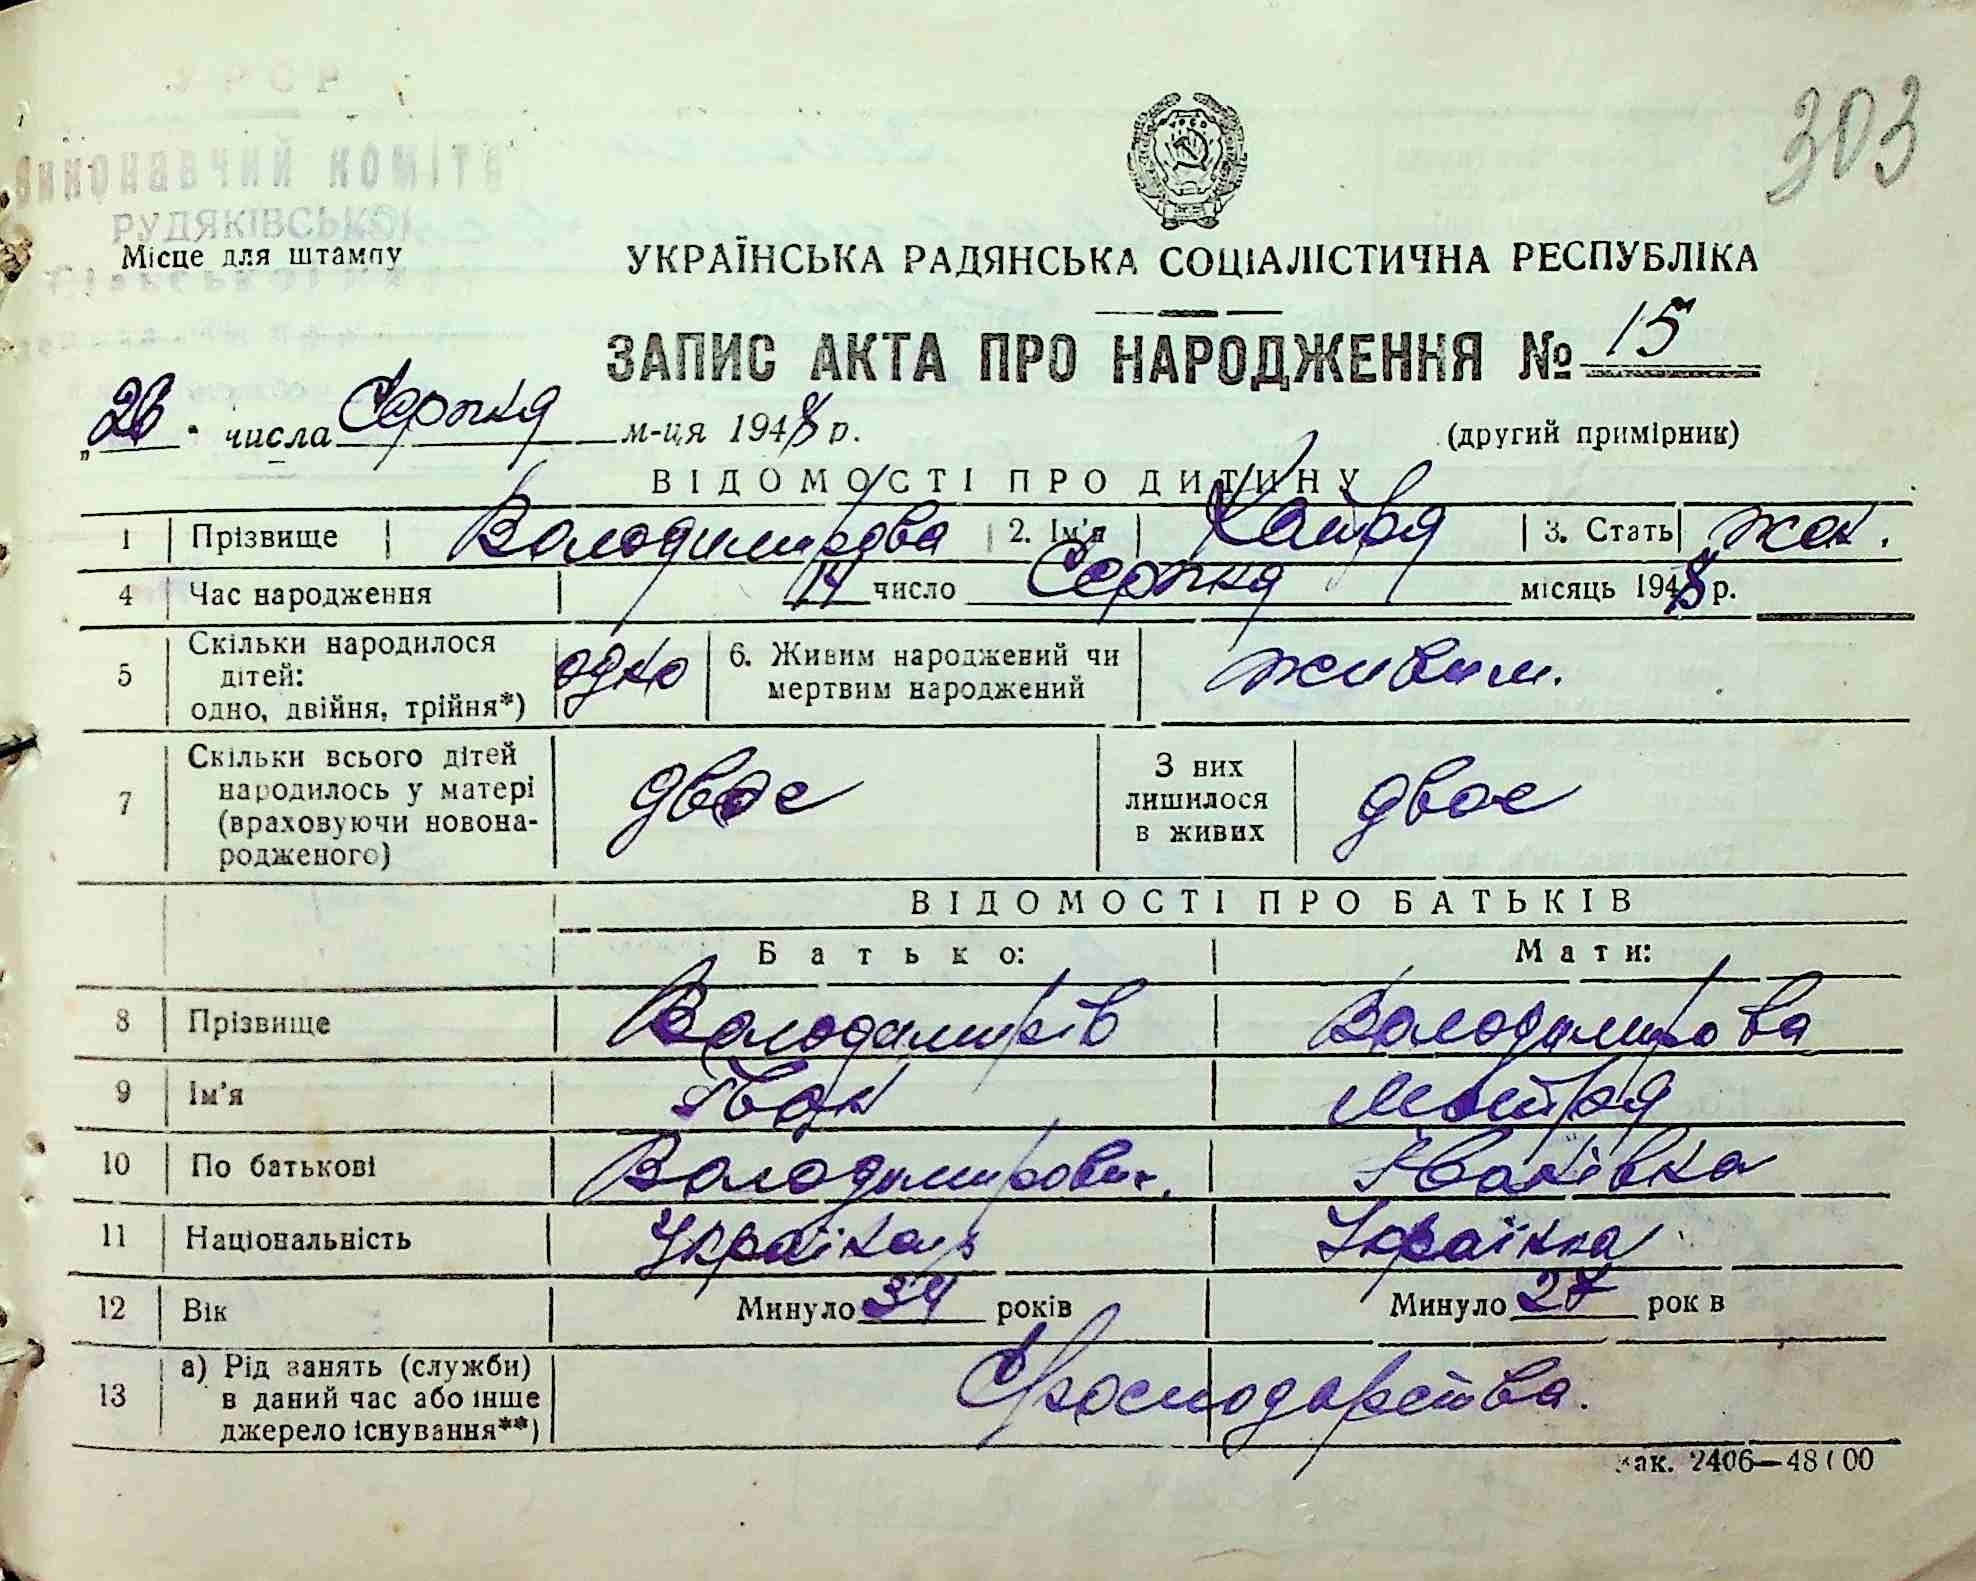 303
УРСР
Виконавчий коміте
РУДЯКІВСЬКОЇ
Місце для штампу
УКРАЇНСЬКА РАДЯНСЬКА СОЦІАЛІСТИЧНА РЕСПУБЛІКА
ЗАПИС АКТА ПРО НАРОДЖЕННЯ № 15
числа Серпня м-ця 1948 р.
(другий примірник)
ВІДОМОСТІ ПРО ДИТИНУ
1 Прізвище Володимирова 2. Ім'я 3. Стать жон.
4 Час народження 14 число Серпня місяць 1948 р.
5 Скільки народилося дітей: одно, двійня, трійня*) одно 6. Живим народжений чи мертвим народжений живим.
7 Скільки всього дітей народилось у матері (враховуючи новонародженого) двое З них лишилося в живих двое
ВІДОМОСТІ ПРО БАТЬКІВ
Батько: Мати:
8 Прізвище Володимирів Володимирова
9 Ім'я Іван Мотря
10 По батькові Володимирович. Іванівна
11 Національність Українець Українка
12 Вік Минуло 34 років Минуло 27 рок в
13 а) Рід занять (служби) в даний час або інше джерело існування**) господарства.
Зак. 2406—48100